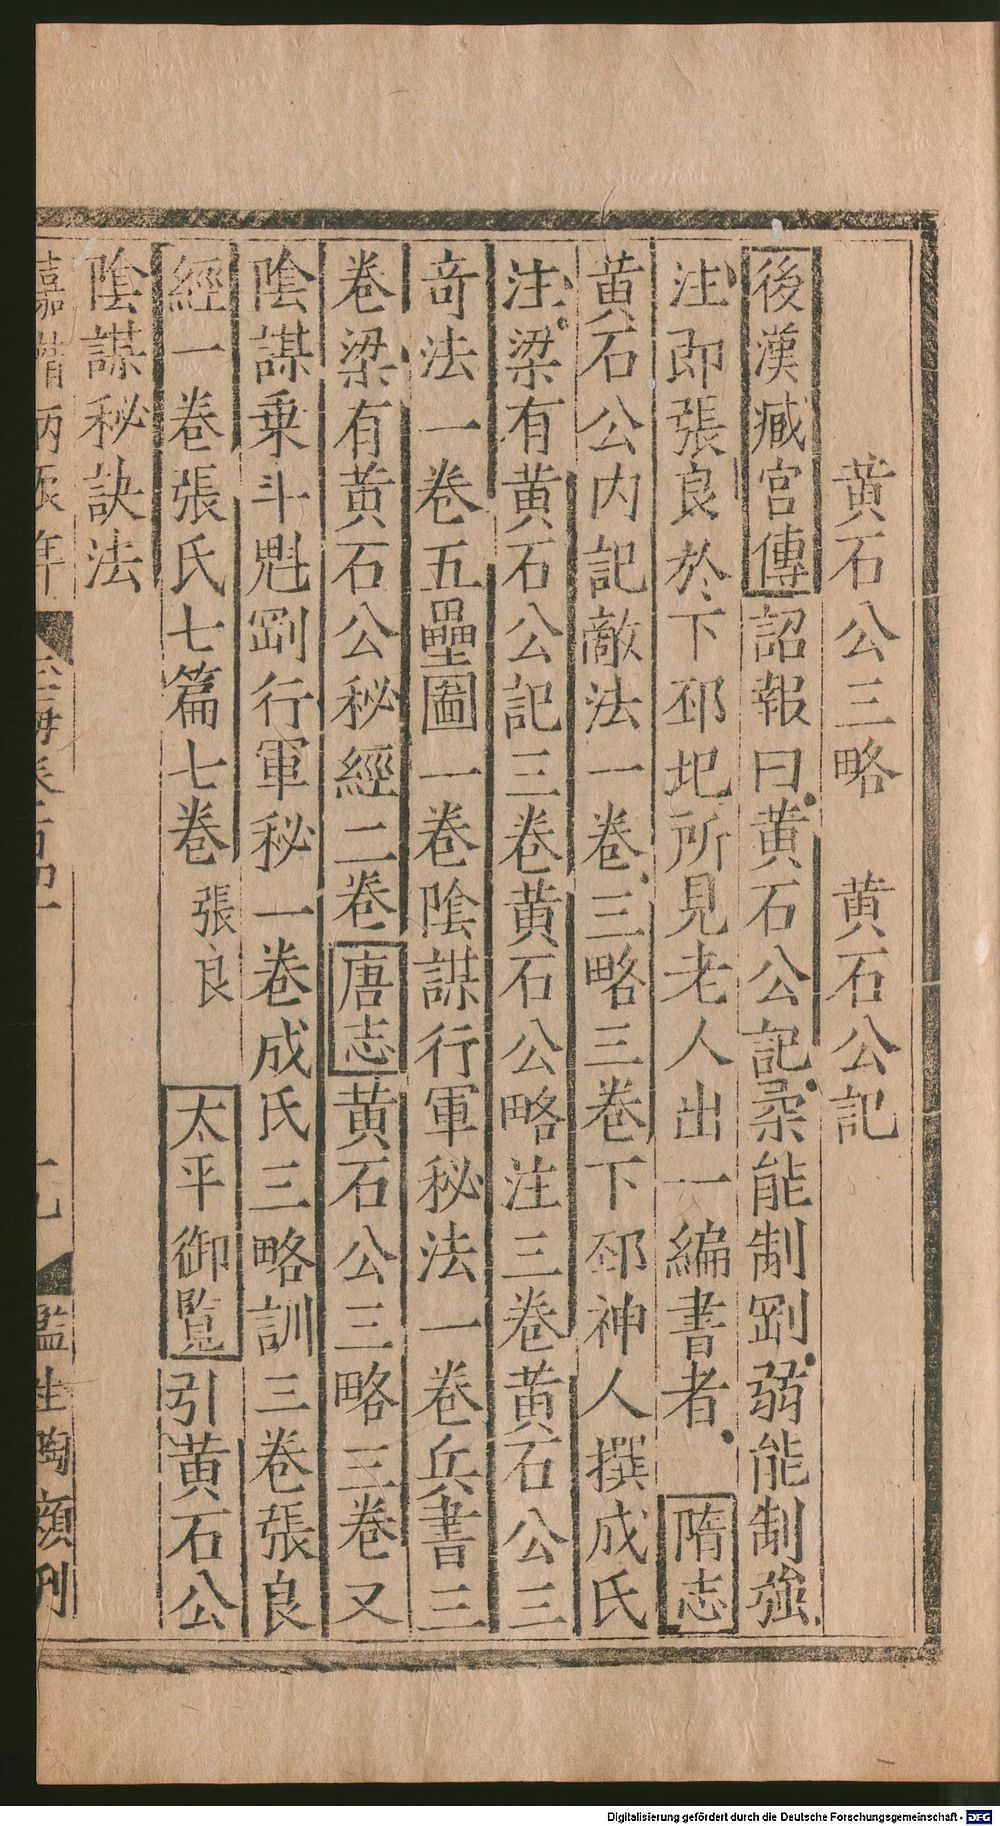 黄石公三略　黄石公記
後漢臧宮傳詔報曰黄石公記柔能制剛弱能制強
注即張良於下邳圯所見老人出一編書者　隋志
黄石公内記敵法一卷三略三卷下邳神人撰成氏
注梁有黄石公記三卷黄石公略注三卷黄石公三
奇法一卷五壘圖一卷陰謀行軍秘法一卷兵書三
卷梁有黄石公秘經二卷唐志黄石公三略三卷又
陰謀乗斗魁剛行軍秘一卷成氏三略訓三卷張良
經一卷張氏七篇七卷張良　太平御覧引黄石公
陰謀秘訣法
嘉靖丙辰年　玉海卷百四十　十九　監生陶頟刊
Digitalisierung gefördert durch die Deutsche Forschungsgemeinschaft - DFG